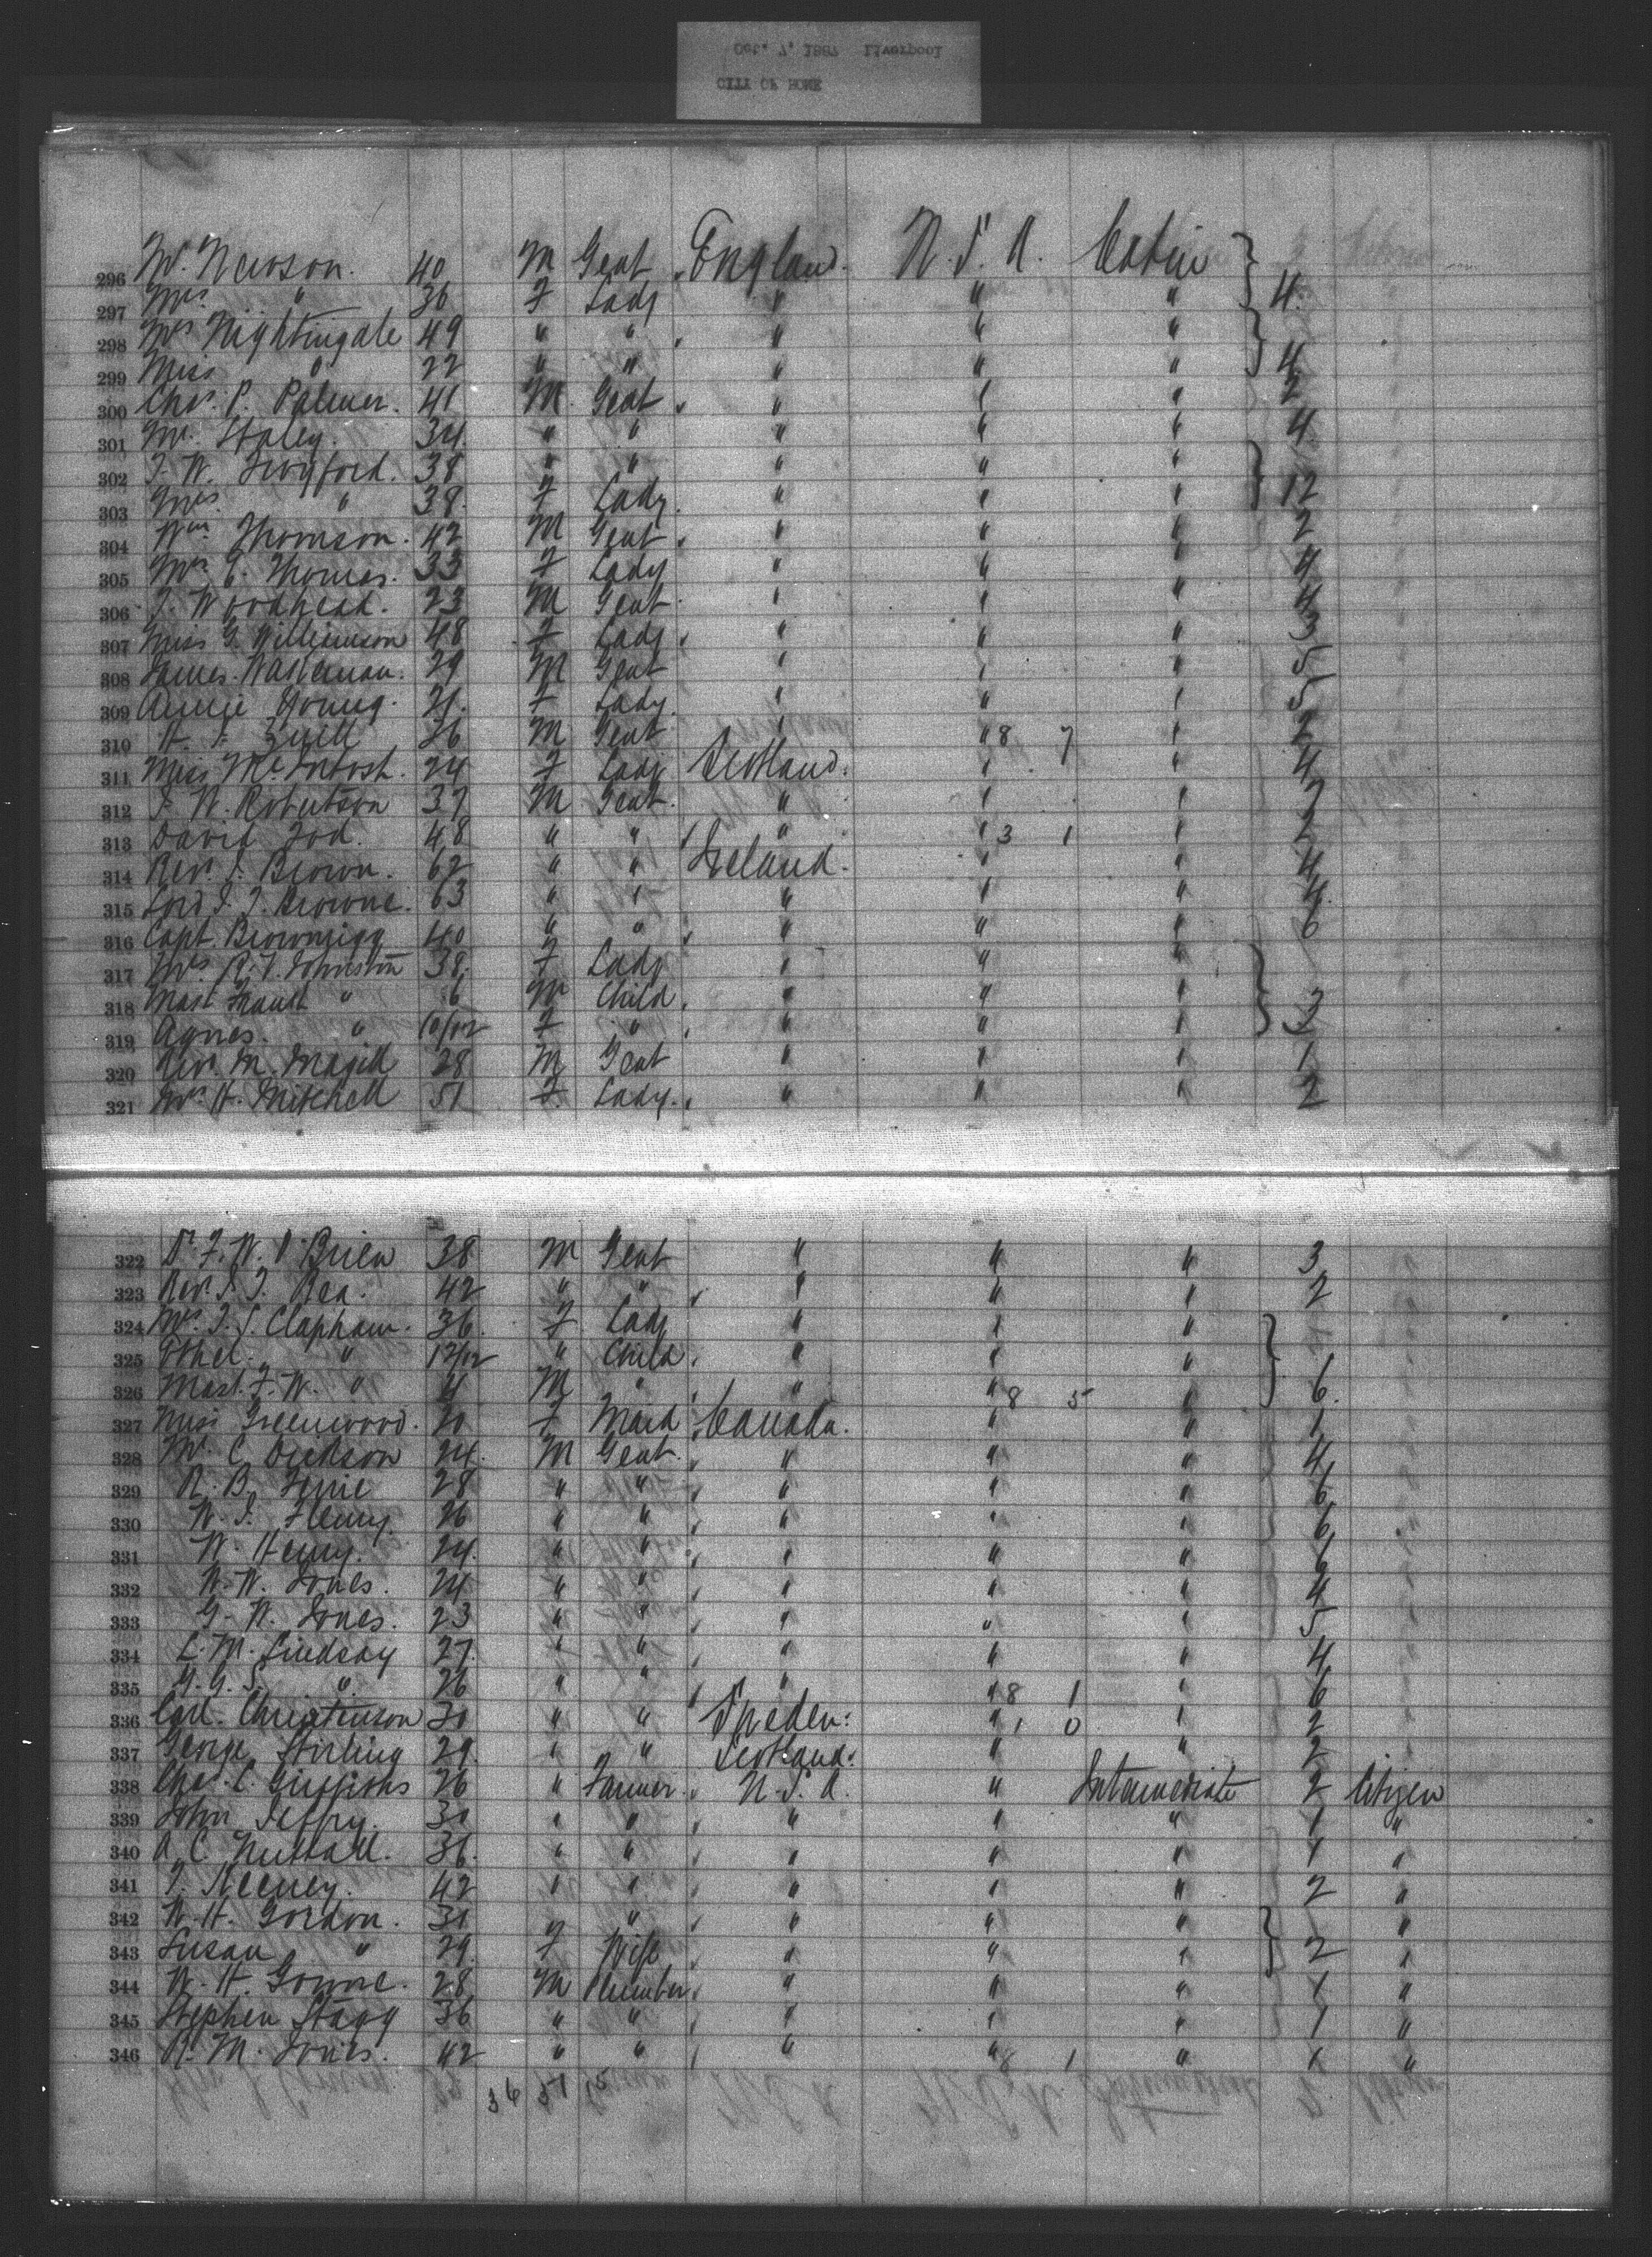 Oct. 7, 1887 Liverpool
CITY OF ROME
296 Mr. Newson. 40 M Gent England. U.S.A. Cabin
297 Mrs " 36 F Lady " " " 4.
298 Mrs Nightingale 49 " " " " "
299 Miss " 22 " " " " " 4
300 Chas. P. Palmer. 41 M. Gent " " " 2
301 Mr. Staley. 34. " " " " " 4
302 T. W. Twyford. 38 " " " " "
303 Mrs " 38. F Lady. " " " 12
304 Wm Thomson. 42 M Gent. " " " 2
305 Mrs E. Thomas. 33 F Lady " " " 4
306 T. Woodhead. 23 M Gent. " " " 4
307 Miss G. Williamson 48 F Lady " " " 3
308 James 29 M Gent " " " 5
309 Annie Young. 21. F Lady. " " " 5
310 H. 26 M Gent " " 8 7 " 2
311 Miss McIntosh. 24 F Lady Scotland. " " 4
312 J. W. Robertson 37 M Gent. " " "
313 David Tod. 48 " " " " 3 1 " 2
314 Rev. J. Brown. 62 " " Ireland. " " 4
315 Lord J. T. Browne. 63 " " " " " 4
316 Capt. Brownrigg 40 " " " " " 6
317 Mrs R. T. Johnston 38. F Lady " " "
318 Mast. " 6 M Child. " " "
319 Agnes. " 10/12 F " " " " 3
320 Rev. M. Magill 28 M Gent " " " 1
321 Mrs H. Mitchell 51 F. Lady. " " " 2
322 Dr. F. W. O'Brien 38 M Gent " " " 3
323 Rev. J. T. Rea. 42 " " " " " 2
324 Mrs T. S. Clapham. 36. F Lady " " "
325 Ethel. " 12/12 " Child. " " "
326 Mast. F. W. " 4 M " " " 8 5 " 6.
327 Miss Greenwood. 20 F Maid Canada. " " 1
328 Mr. C. Dickson 24. M Gent. " " " 4
329 R. B. 28 " " " " " 6
330 W. J. 26 " " " " " 6
331 W. Henry. 24. " " " " " 6
332 W. W. Jones. 24 " " " " " 4
333 G. W. Jones. 23 " " " " " 5
334 L. M. Lindsay 27. " " " " " 4
335 G. G. S. " 26 " " " " 8 1 " 6
336 Carl. Christenson 30 " " Sweden. " 1 0 " 2
337 George Stirling 29. " " Scotland. " " 2
338 Chas. C. Griffiths 26 " Farmer. U.S.A. " Intermediate 2 Citizen
339 John Jeffry. 30 " " " " " 1 "
340 A. C. Nuttall. 36. " " " " " 1 "
341 T. Keeney. 42 " " " " " 2 "
342 W. H. Gordon. 31 " " " " " "
343 Susan " 29. F Wife " " " 2 "
344 W. H. 28 M Plumber " " " 1 "
345 Stephen Stagg 36 " " " " " 1 "
346 R. M. Jones. 42 " " " " 8 1 " 1 "
36 51